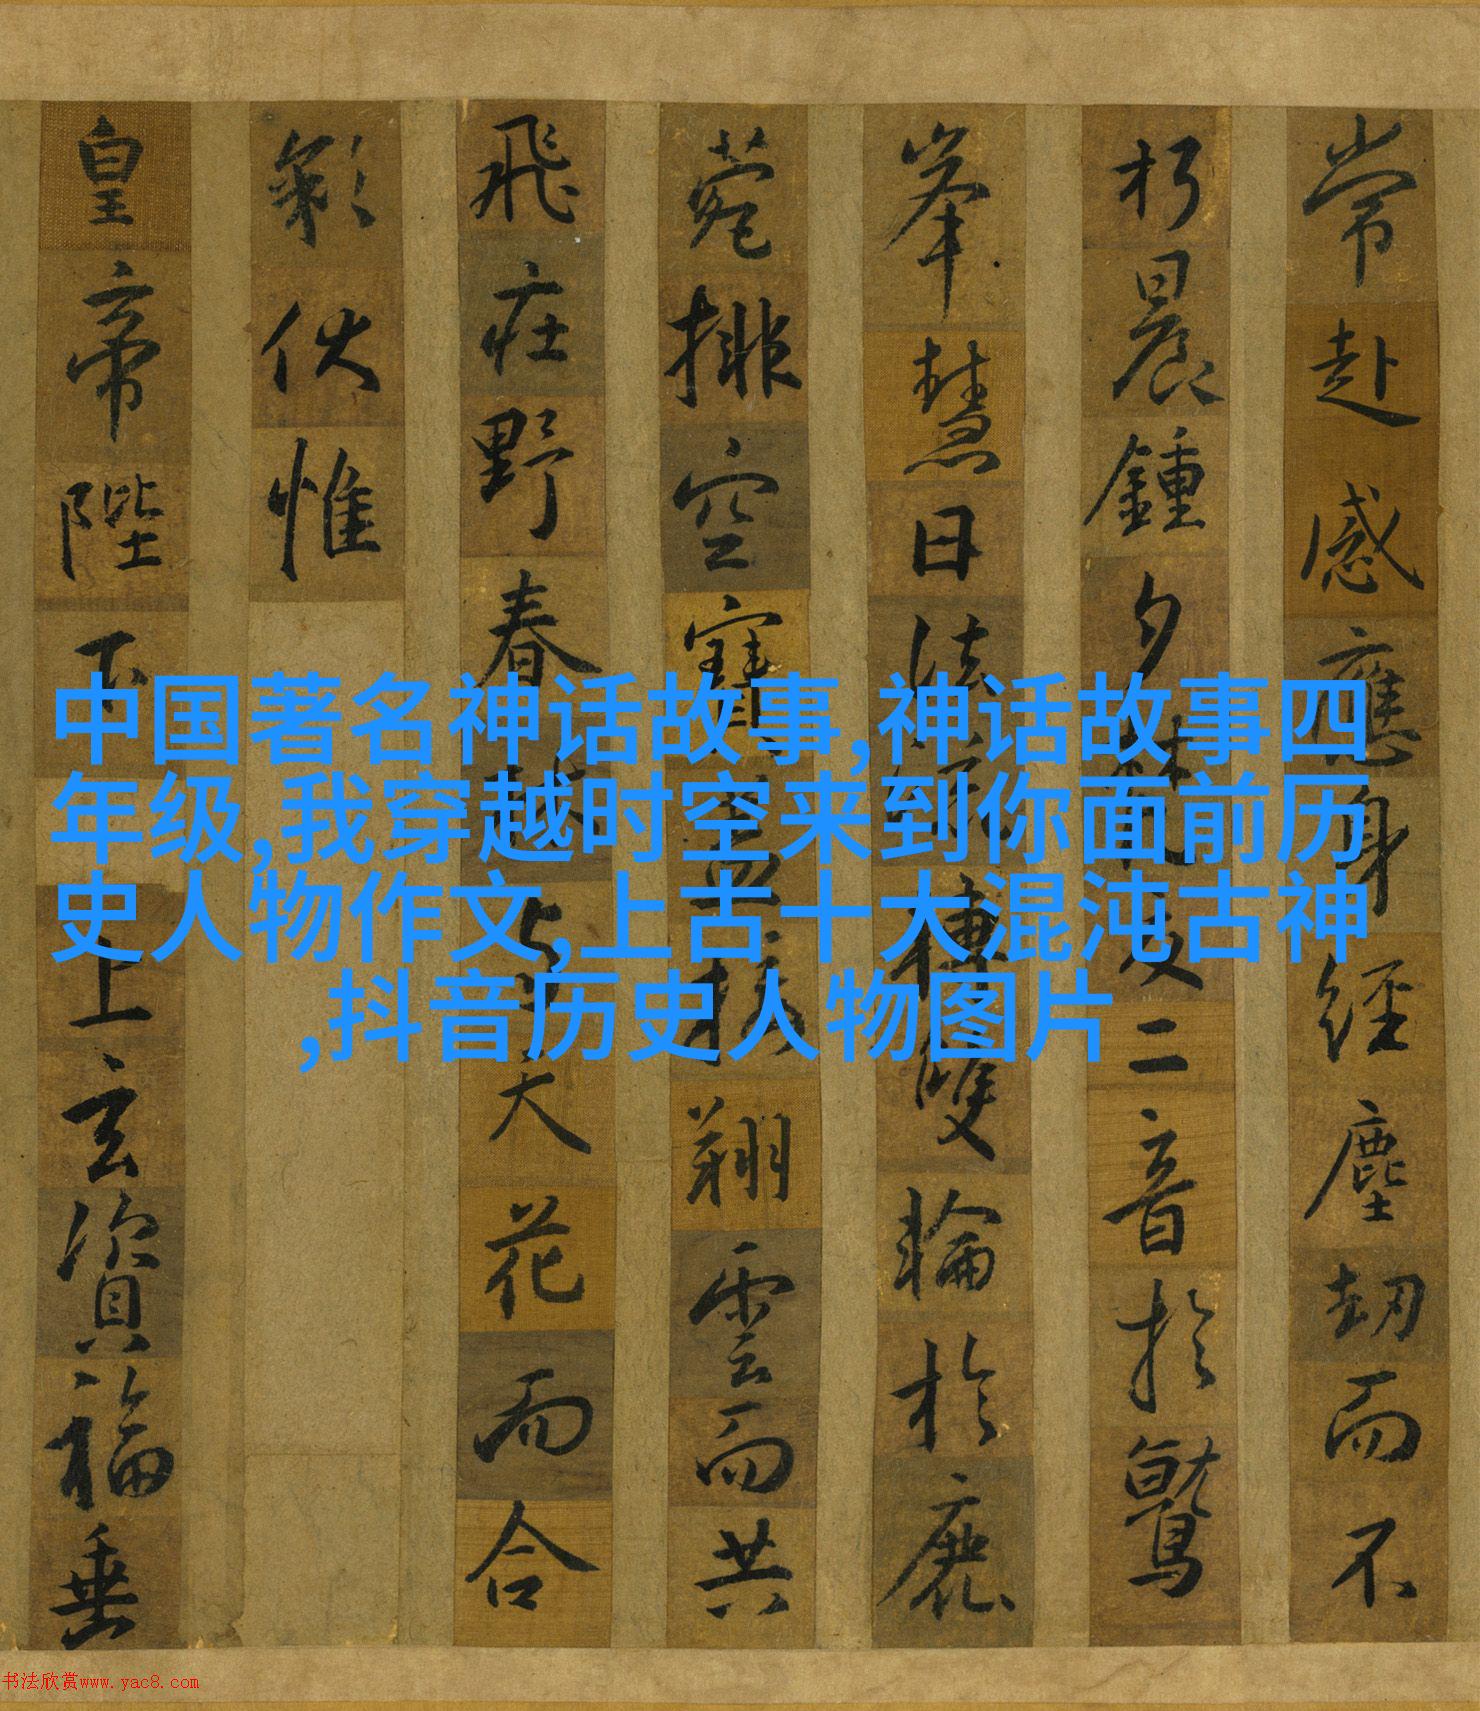 常赴感應身經塵劫而不
朽晨鍾夕梵交二音於鷲
峯慧日法流轉雙輪於鹿
菀排空寶蓋接翔雲而共
飛莊野春林與天花而合
彩伏惟
皇帝陛下上玄資福垂
中国著名神话故事,神话故事四
年级,我穿越时空来到你面前历
史人物作文,上古十大混沌古神
,抖音历史人物图片
书法欣赏www.yac8.com